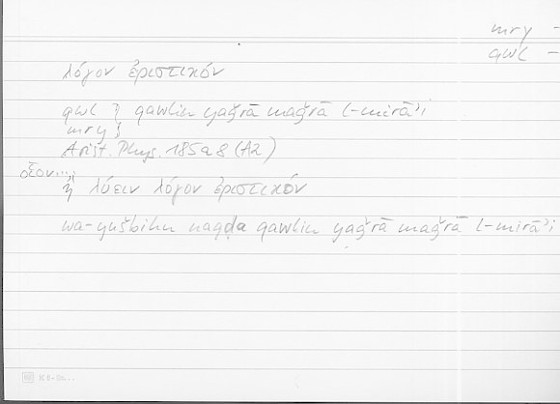 mry -
qwl -
λόγον ἐριστικόν
qwl } qawlin yaǧrā maǧrā l-mirāʾi
mry }
Arist. Phys. 185a8 (A2)
οἷον...,
ἢ λύειν λόγον ἐριστικόν
wa-yušbihu naqḍa qawlin yaǧrā maǧrā l-mirāʾi